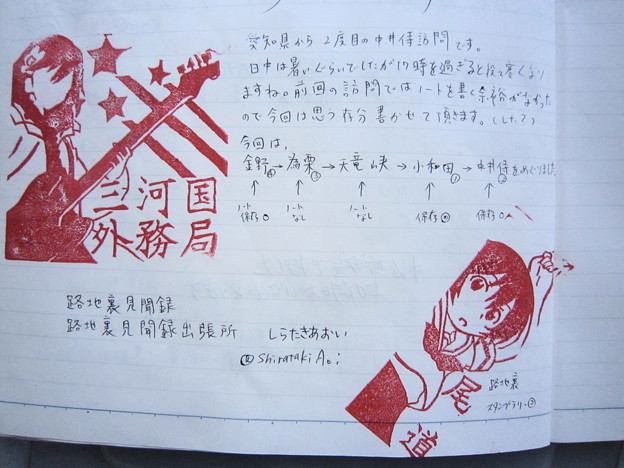 愛知県から2度目の中井侍訪問です。
日中は暑いぐらいでしたが17時を過ぎると段々寒くなり
ますね。前回の訪問ではノートを書く余裕がなかった
ので今回は思う存分書かせて頂きます。(した?)
今回は、
金野→為栗→天竜峡→小和田→中井侍をめぐりました。
↑ ↑ ↑ ↑ ↑
ノート保存 ノートなし ノートなし 保存 保存
三河国
外務局
路地裏見聞録
路地裏見聞録出張所 しらたきあおい
@ShiratakiAoi
路地裏
スタンプラリー②
尾道